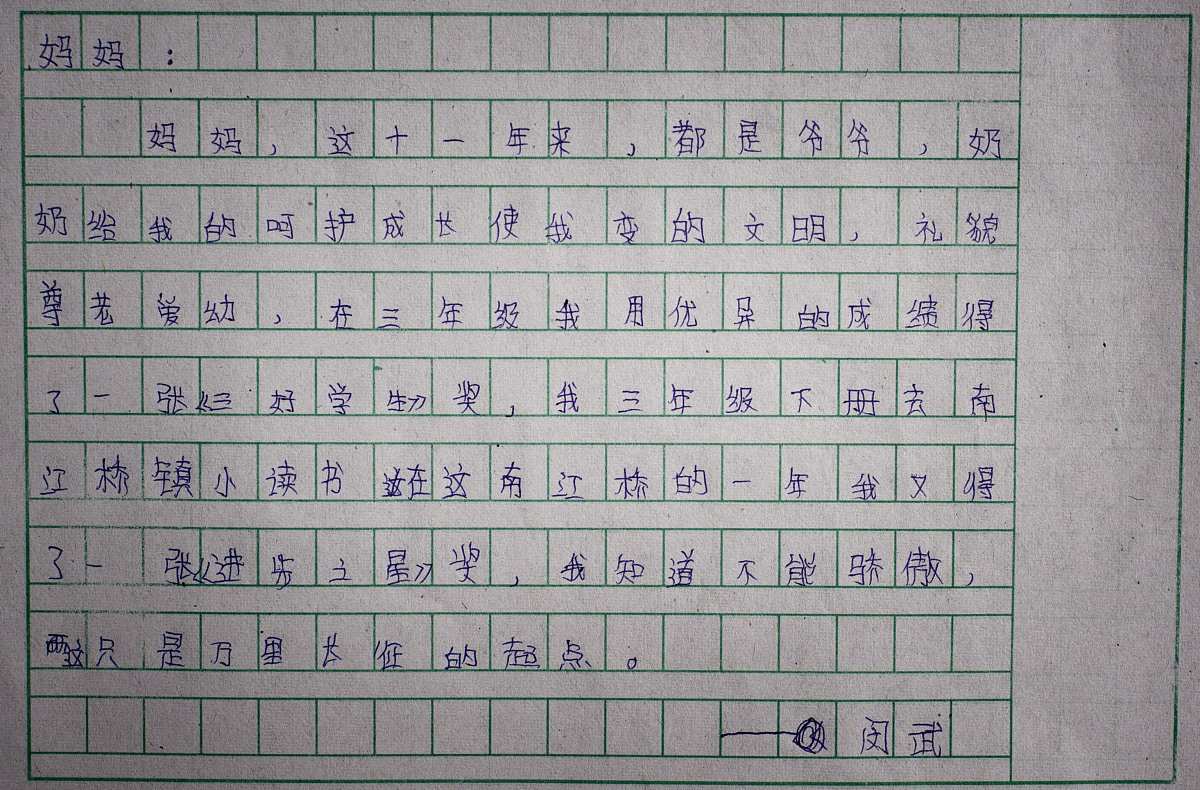 妈妈:
妈妈,这十一年来,都是爷爷,奶
奶给我的呵护成长使我变的文明,礼貌
尊老爱幼,在三年级我用优异的成绩得
了一张《三好学生》奖,我三年级下册去南
江桥镇小读书 在这南江桥的一年我又得
了一张《进步之星》奖,我知道不能骄傲,
这只是万里长征的起点。
——闵武